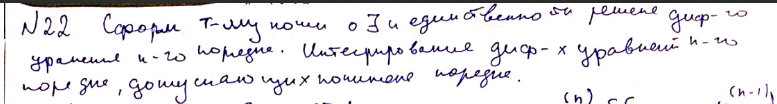 N22 Сформ т-му коши о ∃ и единственности решене диф-го
уравнение n-го порядке. Интегрирование диф-х уравнений n-го
порядке, допускающих понижене порядке.
(n) (n-1)